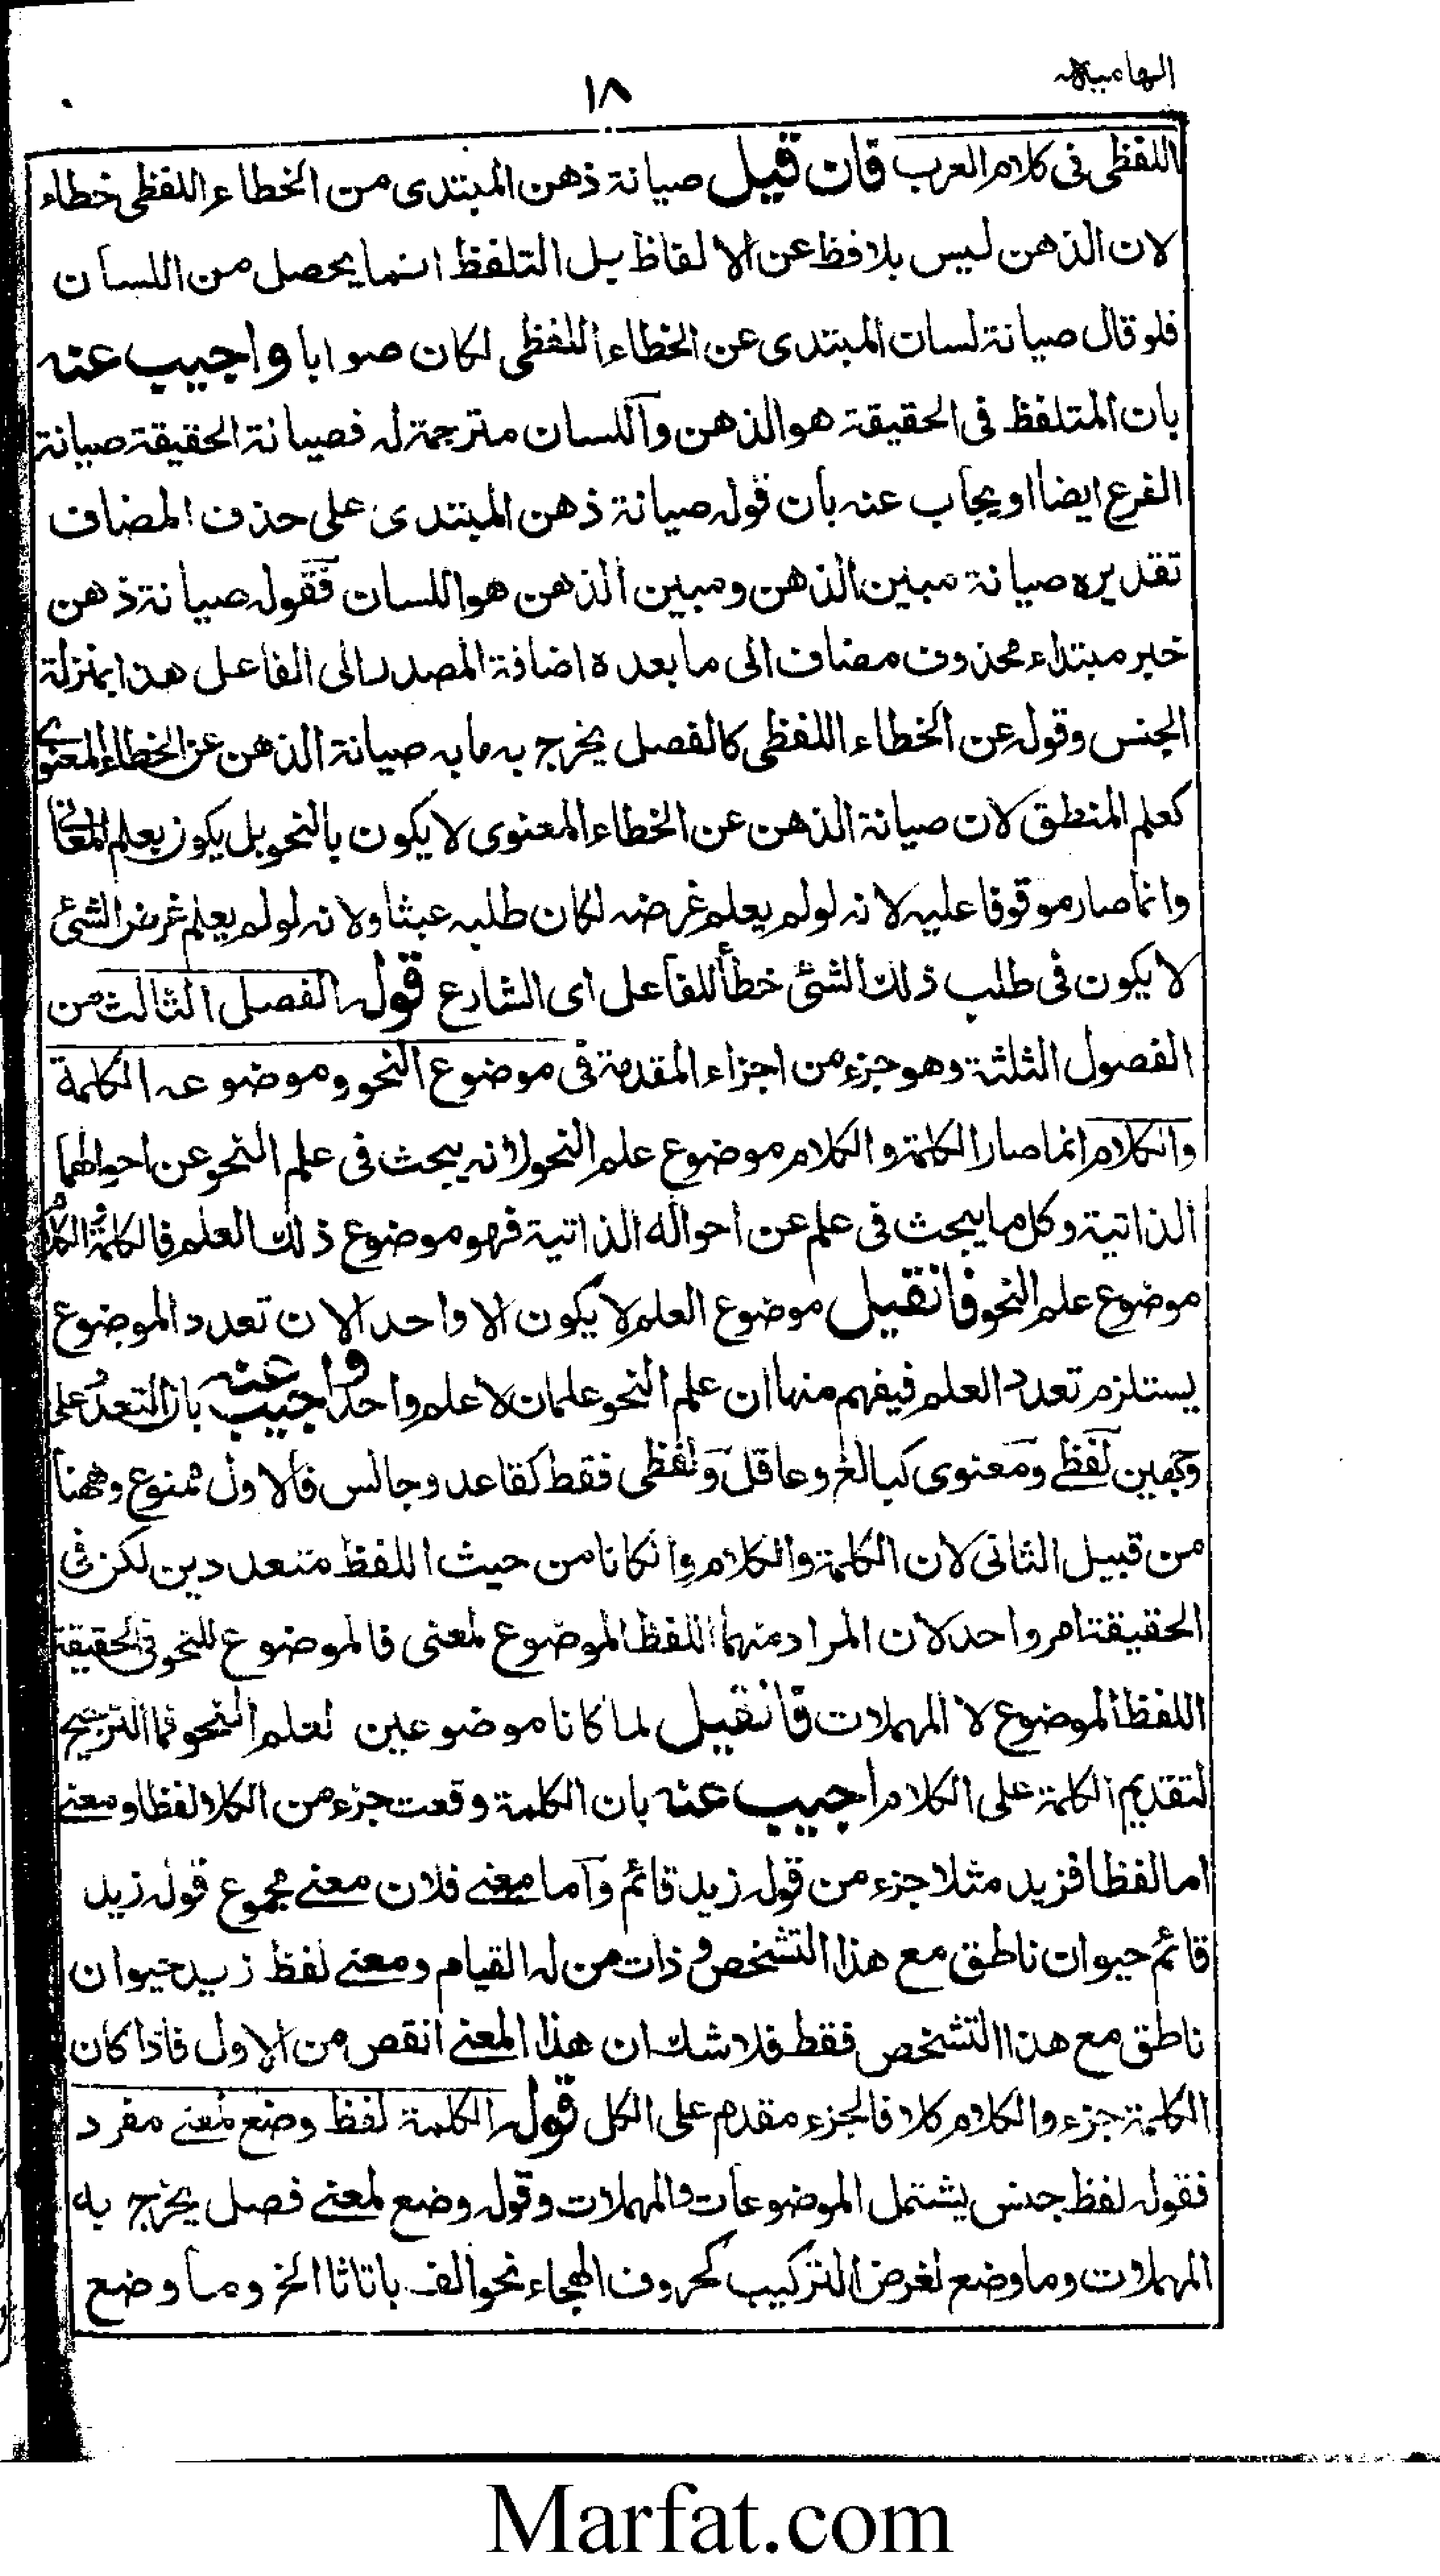 الهامیہ
١٨
اللفظی فی کلام العرب فان قیل صیانۃ ذھن المبتدی من الخطاء اللفظی خطاء
لان الذھن لیس بلافظ عن الالفاظ بل التلفظ انما یحصل من اللسان
فلو قال صیانۃ لسان المبتدی عن الخطاء اللفظی لکان صوابا واجیب عنہ
بان المتلفظ فی الحقیقۃ ھو الذھن واللسان مترجمۃ لہ فصیانۃ الحقیقۃ صیانۃ
الفرع ایضا او یجاب عنہ بان قولہ صیانۃ ذھن المبتدی علی حذف المضاف
تقدیرہ صیانۃ مبین الذھن ومبین الذھن ھو اللسان فقولہ صیانۃ ذھن
خبر مبتداء محذوف مضاف الی ما بعدہ اضافۃ المصدر الی الفاعل ھذا بمنزلۃ
الجنس وقولہ عن الخطاء اللفظی کالفصل یخرج بہ ما بہ صیانۃ الذھن عن الخطاء المعنوی
کعلم المنطق لان صیانۃ الذھن عن الخطاء المعنوی لا یکون بالنحو بل یکون بعلم المعانی
وانما صار موقوفا علیہ لانہ لو لم یعلم غرضہ لکان طلبہ عبثا ولانہ لو لم یعلم غرض الشئ
لا یکون فی طلب ذلک الشئ خطأ للفاعل ای الشارع قولہ الفصل الثالث من
الفصول الثلثۃ وھو جزء من اجزاء المقدمۃ فی موضوع النحو وموضوعہ الکلمۃ
والکلام انما صار الکلمۃ والکلام موضوع علم النحو لانہ یبحث فی علم النحو عن احوالھما
الذاتیۃ وکل ما یبحث فی علم عن احوالہ الذاتیۃ فھو موضوع ذلک العلم فالکلمۃ والکلام
موضوع علم النحو فانقیل موضوع العلم لا یکون الا واحد الان تعدد الموضوع
یستلزم تعدد العلم فیفھم منہا ان علم النحو علمان لا علم واحد واجیب عنہ بان التعدد علی
وجھین لفظی ومعنوی کبالغ وعاقل ولفظی فقط کقاعد وجالس فالاول ممنوع وھھنا
من قبیل الثانی لان الکلمۃ والکلام وانکانا من حیث اللفظ متعددین لکن فی
الحقیقۃ امر واحد لان المراد منھما اللفظ الموضوع لمعنی فالموضوع للنحو فی الحقیقۃ
اللفظ الموضوع لا المہملات فانقیل لما کانا موضوعین لعلم النحو فما الترجیح
لتقدیم الکلمۃ علی الکلام اجیب عنہ بان الکلمۃ وقعت جزء من الکلام لفظا ومعنے
اما لفظا فزید مثلا جزء من قولہ زید قائم واما معنے فلان معنے مجموع قولہ زید
قائم حیوان ناطق مع ھذا التشخص وذات من لہ القیام ومعنے لفظ زید حیوان
ناطق مع ھذا التشخص فقط فلا شک ان ھذا المعنے انقص من الاول فاذا کان
الکلمۃ جزء والکلام کلا فالجزء مقدم علی الکل قولہ الکلمۃ لفظ وضع لمعنے مفرد
فقولہ لفظ جنس یشتمل الموضوعات والمہملات وقولہ وضع لمعنے فصل یخرج بہ
المہملات وما وضع لغرض الترکیب کحروف الھجاء نحو الف باتاثا الخ وما وضع
Marfat.com